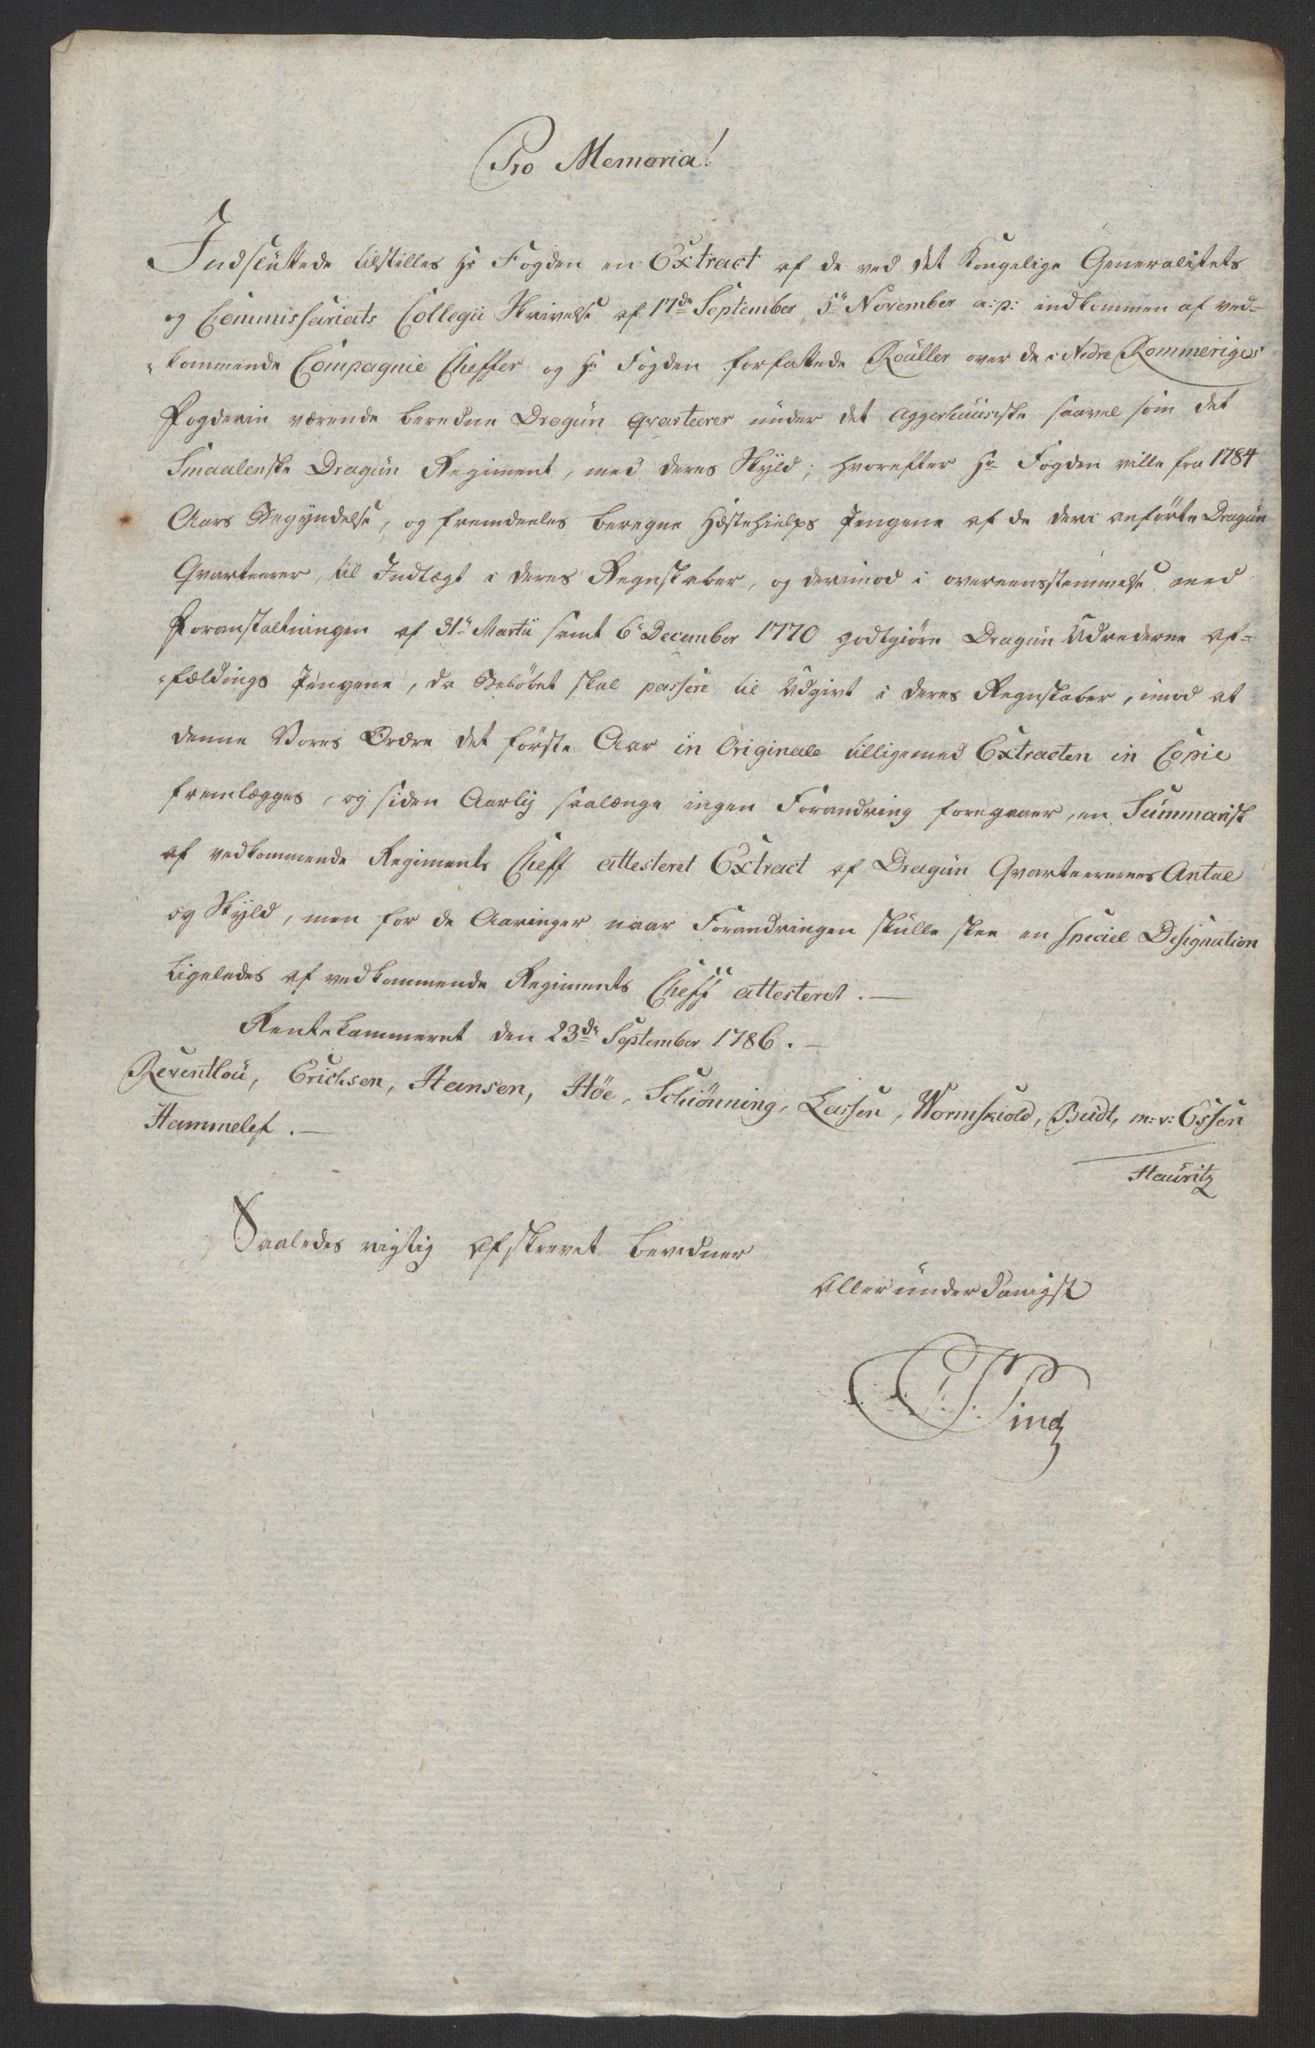 Pro Memoria!
Indsluttede tilstilles Hr Fogden en Extract af de ved det Kongelige Generalitets
og Commissariats Collegii Skrivelse af 17de September, 5te November a: p: indkommen af ved-
kommende Compagnie Cheffer og Hr Fogden forfattede Rouller over de i Nedre Rommeriges
Fogderie værende beredne Dragun qvarteerer under det Aggerhuusiske saavel som det
Smaalenske Dragun Regiment, med deres Skyld; hvorefter Hr Fogden ville fra 1784
Aars Begyndelse, og fremdeeles beregne Hæstehielps Pengene af de deri anførte Dragun
Qvarteerer, til Indtægt i deres Regnskaber, og derimod i overeensstemmelse med
Foranstaltningen af 31te Martii samt 6te December 1770 godtgiøre Dragun Udrederne af-
fældings Pengene, da Beløbet skal passere til Udgivt i deres Regnskaber, imod at
denne Vores Ordre det første Aar in Originale tilligemed Extracten in Copie
fremlægges, og siden Aarlig saalænge ingen Forandring foregaaer, en Summarisk
af vedkommende Regiments Cheff attesteret Extract af Dragun Qvarteerernes Antal
og Skyld, men for de Aaringer naar Forandringen skulle skee en speciel Designation
ligeledes af vedkommende Regiments Cheff attesteret. —
Rentekammeret den 23de September 1786. —
Reventlou, Erichsen, Hansen, Høe, Schiønning, Lassen, Wormskiold, Budt, m: v: Essen
Hammelef. —
Hauritz
Saaledes rigtig Afskrevet bevidner
Allerunderdanigst